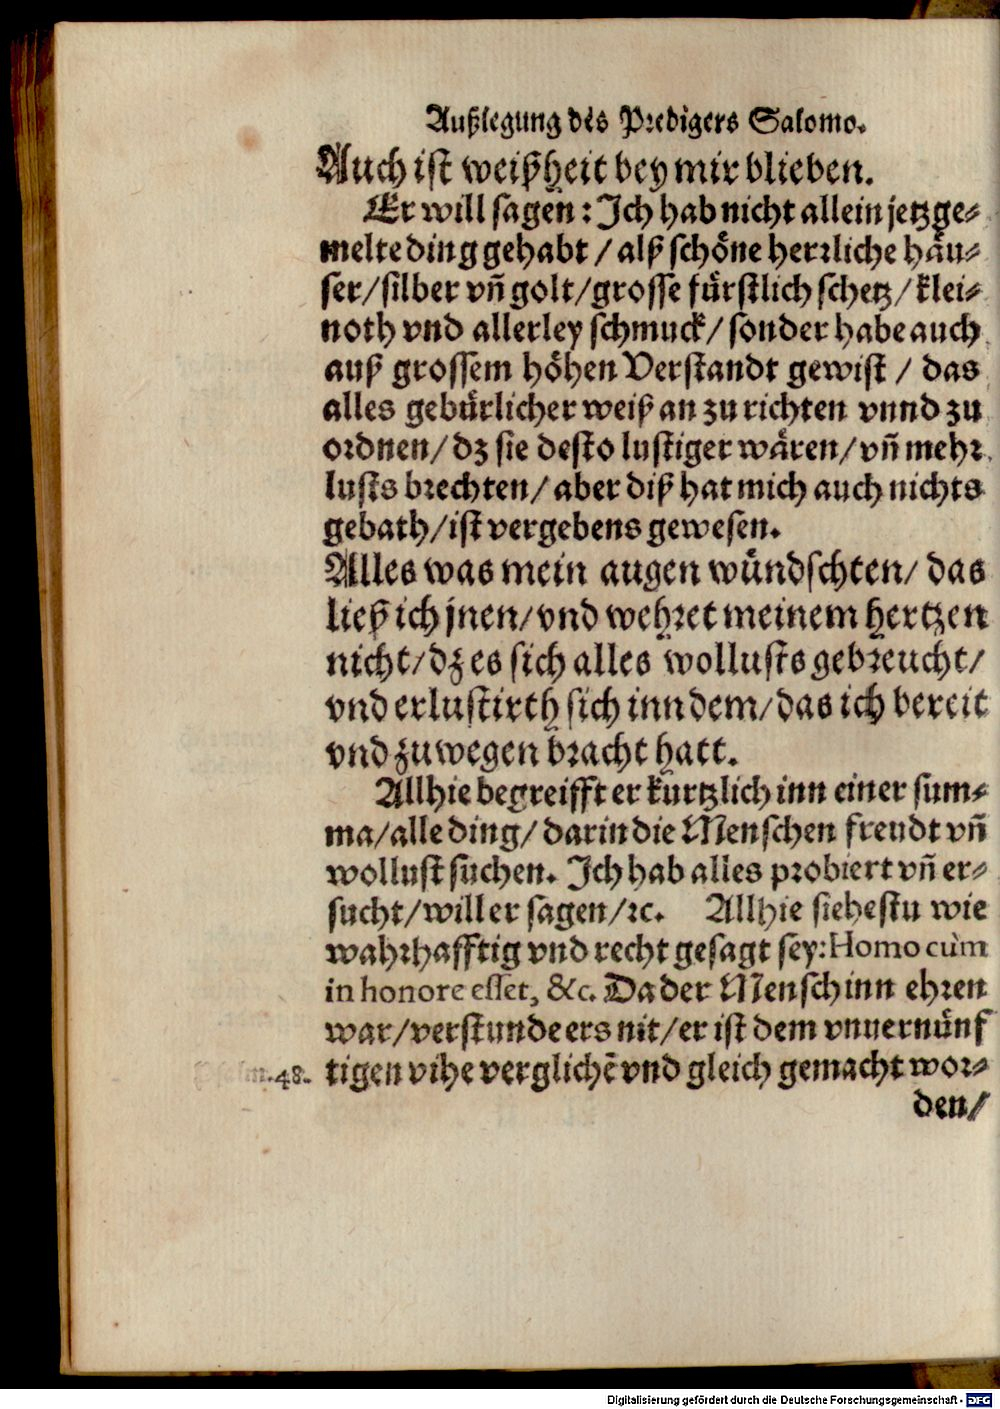 Außlegung des Predigers Salomo.
Auch ist weißheit bey mir blieben.
Er will sagen: Ich hab nicht allein jetzge⸗
melte ding gehabt / alß schöne herrliche häu⸗
ser/silber vñ golt/grosse fürstlich schetz/klei⸗
noth vnd allerley schmuck/sonder habe auch
auß grossem höhen Verstandt gewist / das
alles gebürlicher weiß an zu richten vnnd zu
ordnen/dz sie desto lustiger wären/vñ mehr
lusts brechten/aber diß hat mich auch nichts
gebath/ist vergebens gewesen.
Alles was mein augen wündschten/das
ließ ich jnen/vnd wehret meinem hertzen
nicht/dz es sich alles wollusts gebreucht/
vnd erlustirth sich inn dem/das ich bereit
vnd zuwegen bracht hatt.
Allhie begreifft er kürtzlich inn einer sum⸗
ma/alle ding/darin die Menschen freudt vñ
wollust suchen. Ich hab alles probiert vñ er⸗
sucht/will er sagen/ꝛc. Allhie siehestu wie
wahrhafftig vnd recht gesagt sey: Homo cùm
in honore esset, &c. Da der Mensch inn ehren
war/verstunde ers nit/er ist dem vnuernünf
48. tigen vihe verglichē vnd gleich gemacht wor⸗
den/
Digitalisierung gefördert durch die Deutsche Forschungsgemeinschaft - DFG